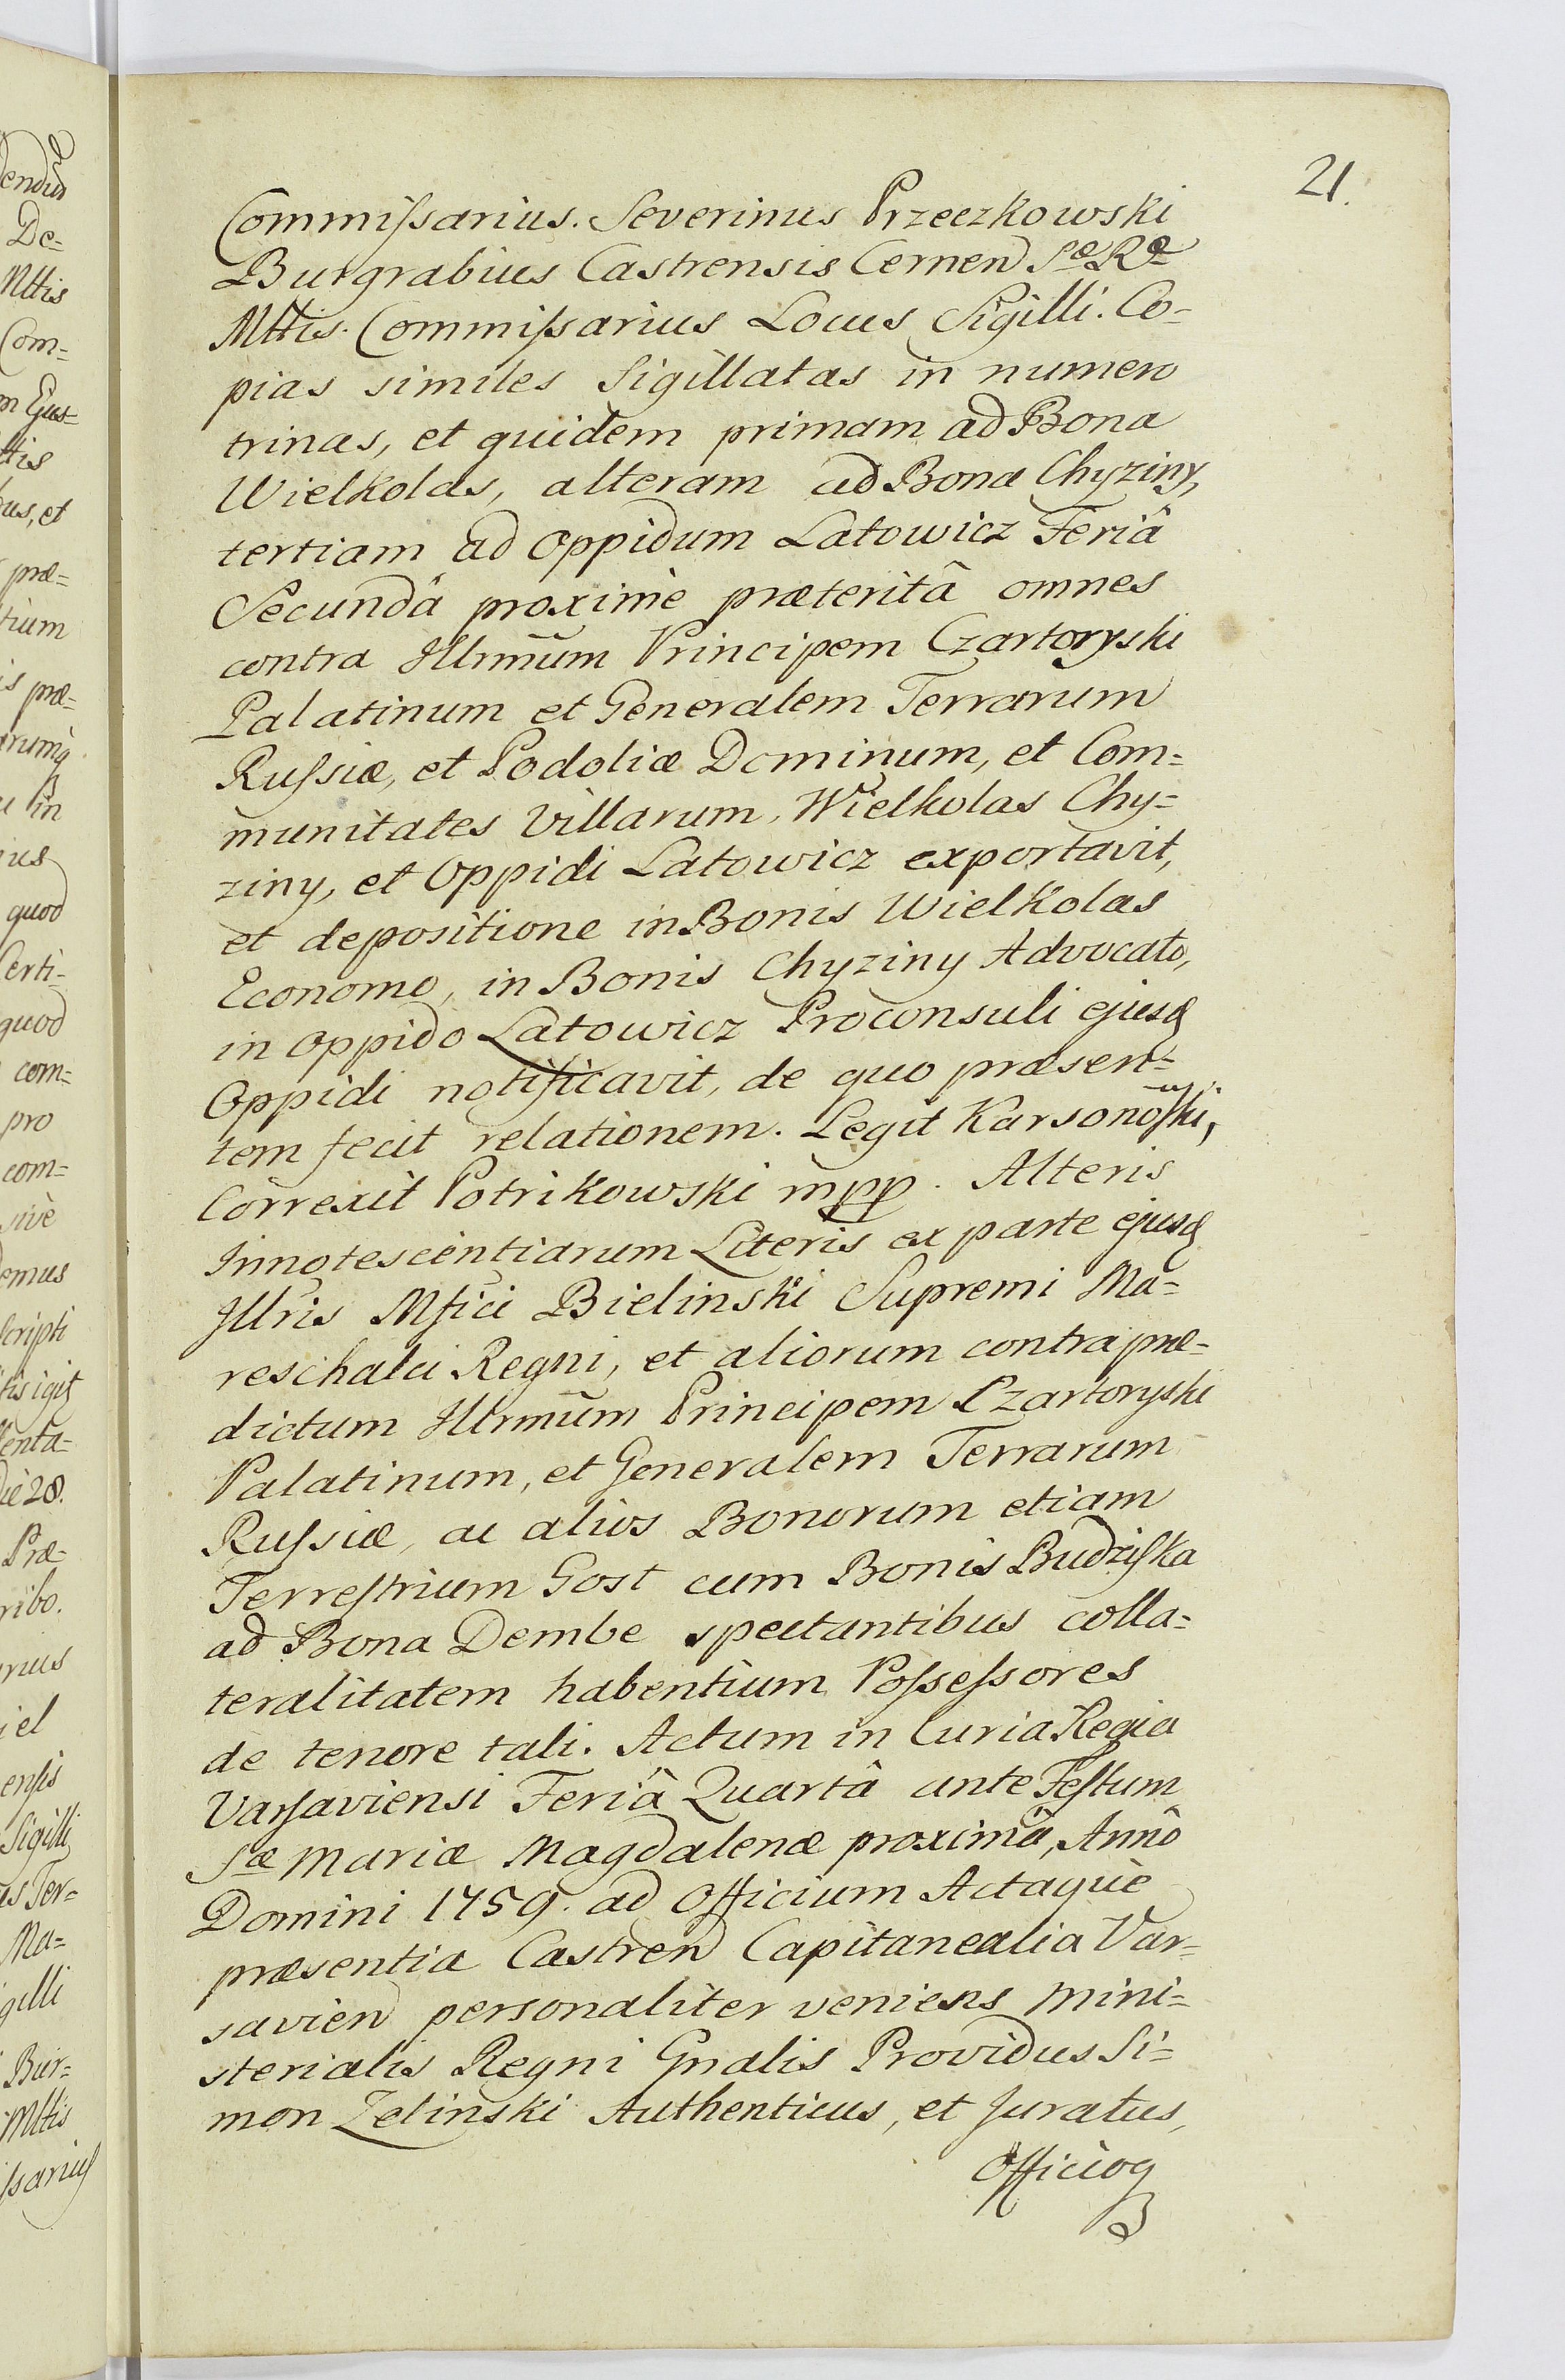 21.
Commiſsarius. Severinus Przeczkowski
Burgrabius Castrensis Cernen Sæ Ræ
Mttis. Commiſsarius Locus Sigilli. Co-
pias similes Sigillatas in numero
trinas, et quidem primam ad Bona
Wielkolas, alteram ad Bona Chyziny,
tertiam ad Oppidum Latowicz Feriâ
Secundâ proximè præteritâ omnes
contra Illrmūm Principem Czartoryski
Palatinum et Generalem Terrarum
Ruſsiæ, et Podoliæ Dominum, et Com=
munitates Villarum, Wielkolas Chy=
ziny, et Oppidi Latowicz exportavit,
et depositione in Bonis Wielkolas
Economo, in Bonis Chyziny Advocato,
in Oppido Latowicz Proconsuli ejusq
Oppidi notificavit, de quo præsen=
tem fecit relationem. Legit Karsonoſki,
Correxit Potrikowski mpp. Alteris
Innotescentiarum Literis ex parte ejusq
Jllris Mfici Bielinski Supremi Ma=
reschalci Regni, et aliorum contra præ-
dictum Illrmūm Principem Czartoryski
Palatinum, et Generalem Terrarum
Ruſsiæ, ac alios Bonorum etiam
Terreſtrium Gost cum Bonis Budziſka
ad Bona Dembe spectantibus colla=
teralitatem habentium Poſseſsores
de tenore tali. Actum in Curia Regia
Varſaviensi Feriâ Quartâ ante Feſtum
Sæ Mariæ Magdalenæ proximâ, Annô
Domini 1759. ad Officium Actaquè
præsentia Castren Capitanealia Var=
savien personaliter veniens Mini=
sterialis Regni Gnalis Providus Si=
mon Zelinski Authenticus, et Juratus,
Officioq